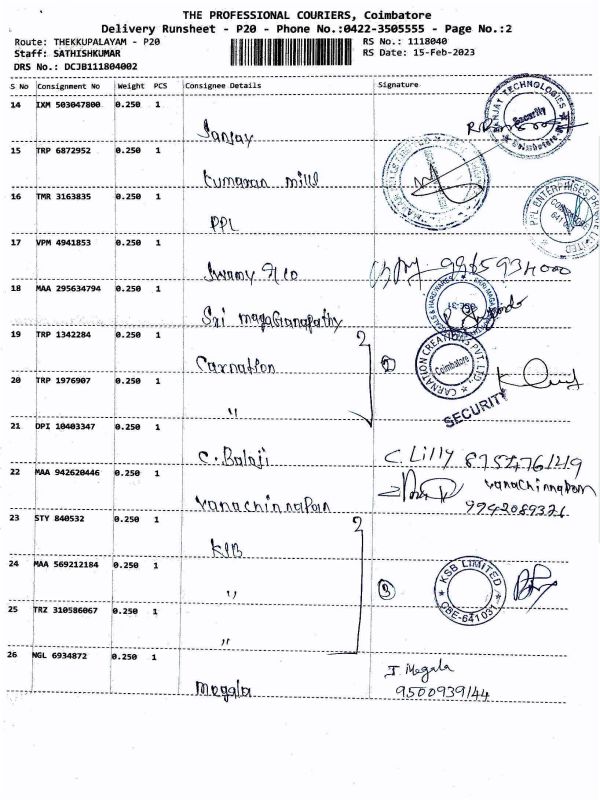 THE PROFESSIONAL COURIERS, Coimbatore
Delivery Runsheet - P20 - Phone No.:0422-3505555 - Page No.:2
Route: THEKKUPALAYAM - P20 RS No.: 1118040
Staff: SATHISHKUMAR RS Date: 15-Feb-2023
DRS No.: DCJB111804002
S No Consignment No Weight PCS Consignee Details Signature
14 IXM 503047800 0.250 1
Sanjay
SANJAY TECHNOLOGIES Security Coimbatore
15 TRP 6872952 0.250 1
Kumaran mills
16 TMR 3163835 0.250 1
PPL
PPL ENTERPRISES COIMBATORE 641
17 VPM 4941853 0.250 1
Swamy & co
18 MAA 295634794 0.250 1
Sri magaGanapathy
19 TRP 1342284 0.250 1
Carnation 2
CARNATION CREATIONS PVT. LTD., Coimbatore
SECURITY
20 TRP 1976907 0.250 1
"
21 DPI 10403347 0.250 1
C. Balaji C. Lilly
22 MAA 942620446 0.250 1
vanachinnapan vanachinnapan
9942089326
23 STY 840532 0.250 1
KSB
24 MAA 569212184 0.250 1
" 3
KSB LIMITED CBE-641031
25 TRZ 310586067 0.250 1
"
26 NGL 6934872 0.250 1
Megala J. Megala
9500939144